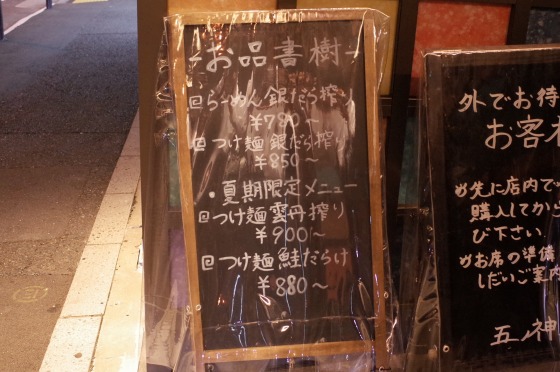 お品書樹
らーめん 銀だら搾り
¥780～
つけ麺 銀だら搾り
¥850～
・夏期限定メニュー
つけ麺 雲丹搾り
¥900～
つけ麺 鮭だらけ
¥880～
外でお待
お客
先に店内で
購入してから
び下さい
お席の準備
しだいご案
五ノ神